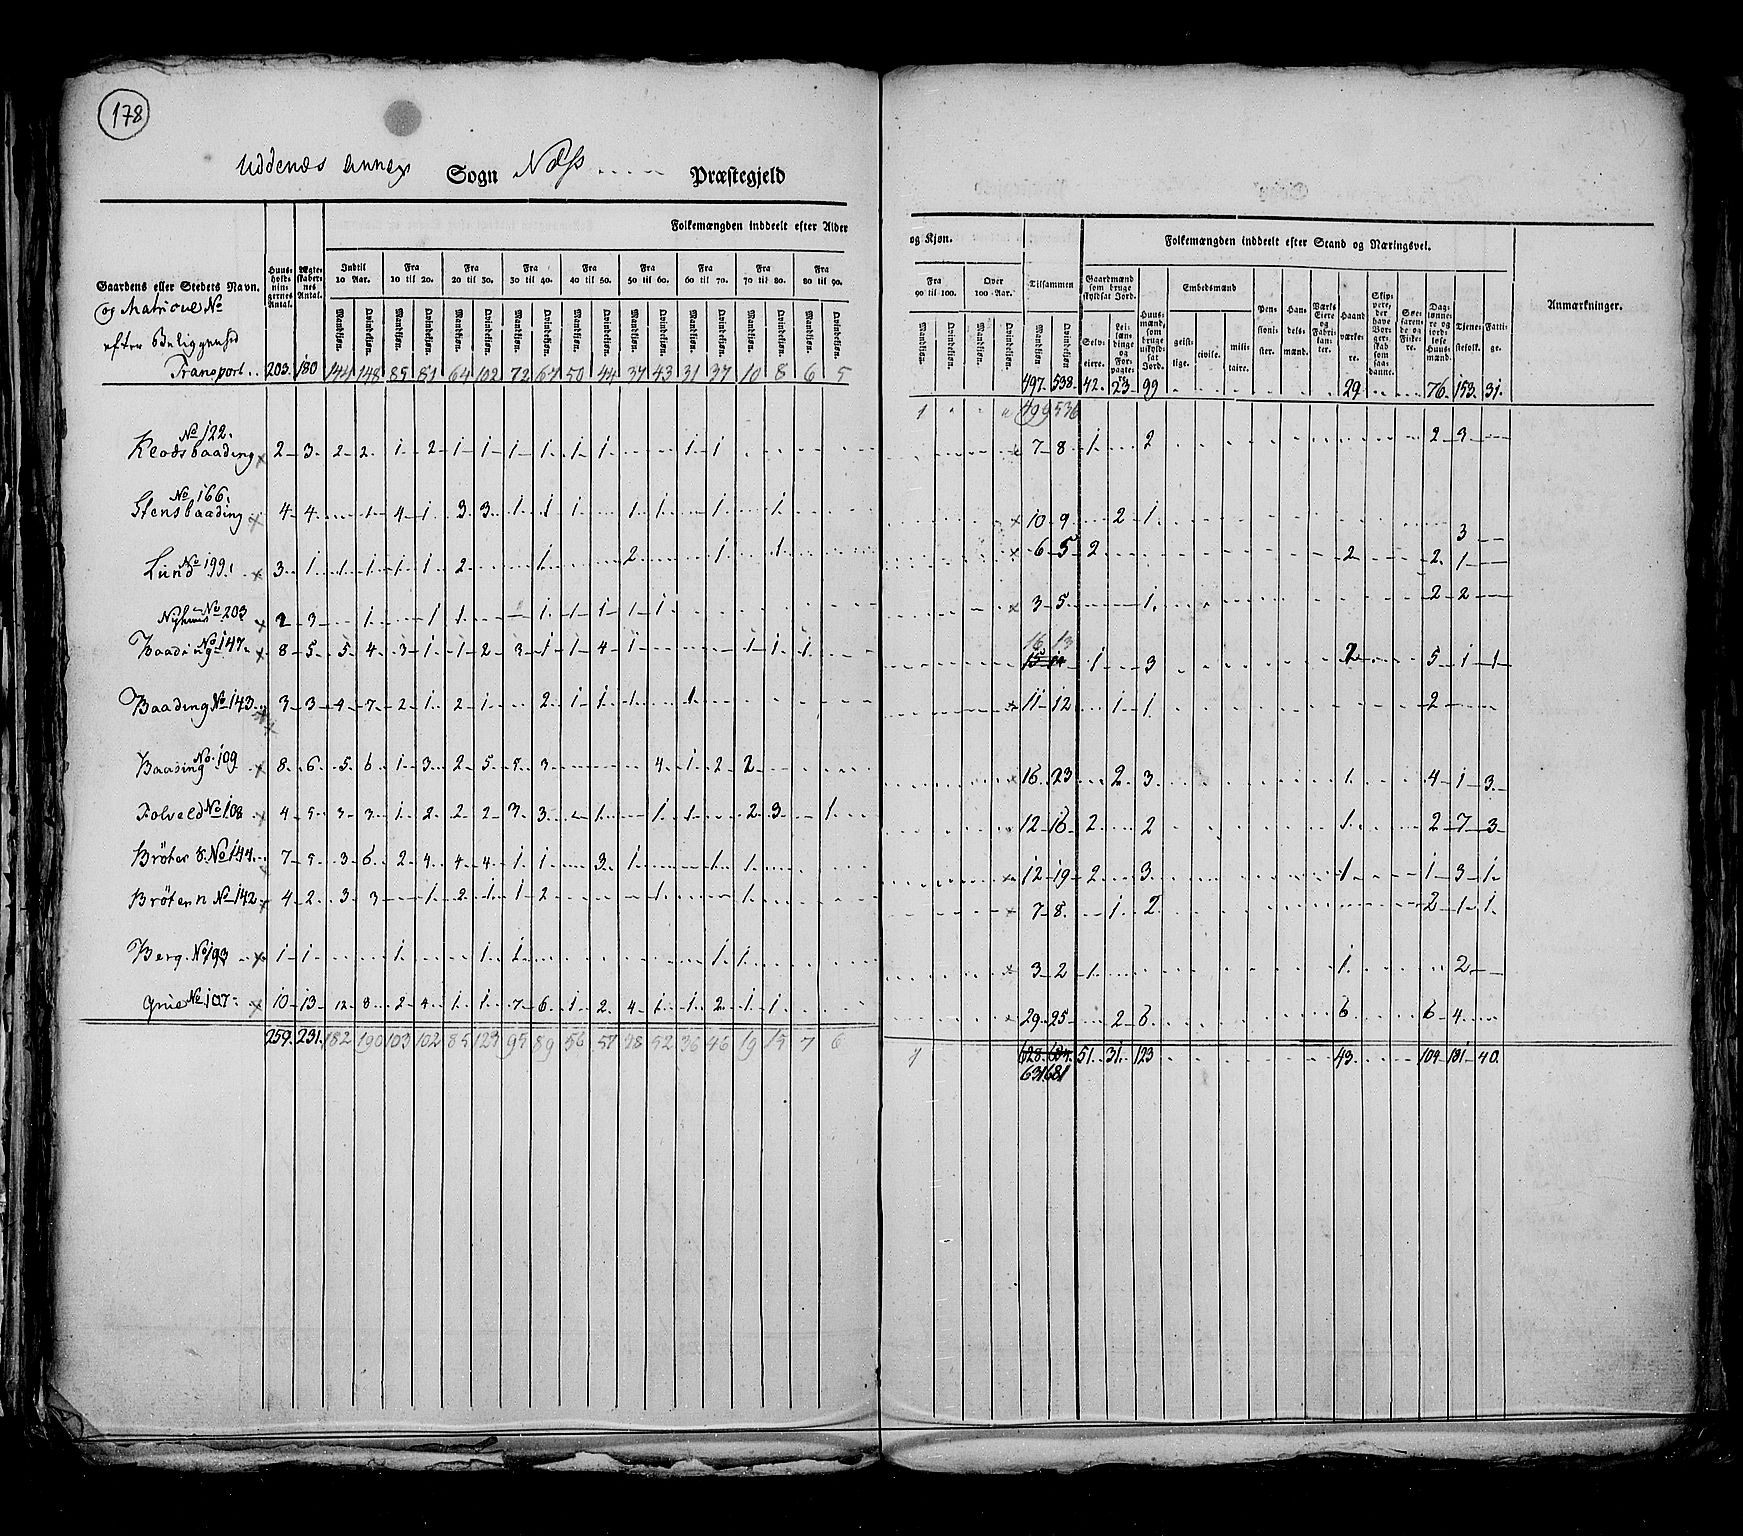 178
Uddenæs Annex Sogn Næss Præstegjeld
Folkemængden inddeelt efter Alder og Kjøn.
Folkemængden inddeelt efter Stand og Næringsvei.
Gaardens eller Stedets Navn.
og Matricul No
efter Beliggenhed
Huusholdningernes Antal.
Ægteskabernes Antal.
Indtil 10 Aar.
Fra 10 til 20.
Fra 20 til 30.
Fra 30 til 40.
Fra 40 til 50.
Fra 50 til 60.
Fra 60 til 70.
Fra 70 til 80.
Fra 80 til 90.
Fra 90 til 100.
Over 100 Aar.
Tilsammen
Mandkjøn. Qvindekjøn.
Gaardmænd som bruge skyldsat Jord.
Selveiere.
Leilændinge og Forpagtere
Huusmænd, som bruge uskyldsat Jord.
Embedsmænd
geistlige.
civile.
militaire.
Pensionister.
Handelsmænd.
Værks Eiere og Fabrikanter.
Haandværkere.
Skippere, der have Borgerskab som saadanne.
Søefarende og Fiskere.
Daglønnere og jordløse Huusmænd.
Tjenestefolk.
Fattige.
Anmærkninger.
Transport . . 203. 180 144 148 85 81 64 102 72 67 50 44 37 43 31 37 10 8 6 5 497. 538. 42. 23 99 29 76. 153. 31.
1 499 536
No 122.
Klodsbaading 2 3 2 2 1 2 1 1 1 1 1 1 1 1 7 8 1 2 2 3
No 166.
Stensbaading 4 4 1 4 1 3 3 1 1 1 1 1 1 1 10 9 2 1 3
Lund No 199. 3 1 1 1 1 1 2 1 2 1 1 6 5 2 2 2 1
Nyhuus No 203 2 3 1 1 1 1 1 1 1 1 3 5 1 2 2
16 13
Baading No 147. 8 5 5 4 3 1 1 2 3 1 1 4 1 1 1 1 15 14 1 3 2 5 1 1
Baading No 143. 3 3 4 7 2 1 2 1 2 1 1 1 1 11 12 1 1 2
Baading No. 109 8 6 5 6 1 3 2 5 5 3 4 1 2 2 16 23 2 3 1 4 1 3
Folveld No 108 4 5 3 3 1 2 2 2 3 3 1 1 1 2 3 1 12 16 2 2 1 2 7 3
Bröten S. No 144. 7 5 3 6 2 4 4 4 1 1 3 1 1 1 12 19 2 3 1 1 3 1
Bröten N No 142 4 2 3 3 1 2 1 1 2 1 1 7 8 1 2 2 1 1
Berg. No 193 1 1 1 1 1 1 1 3 2 1 1 2
Grue No 107 10 13 12 8 2 4 1 1 7 6 1 2 4 1 1 2 1 1 29 25 2 6 6 6 4
259. 231. 182 190 103 102 85 123 95 89 56 57 48 52 36 46 19 15 7 6 1 628. 684. 51. 31. 123 43. 104 181 40.
631 681